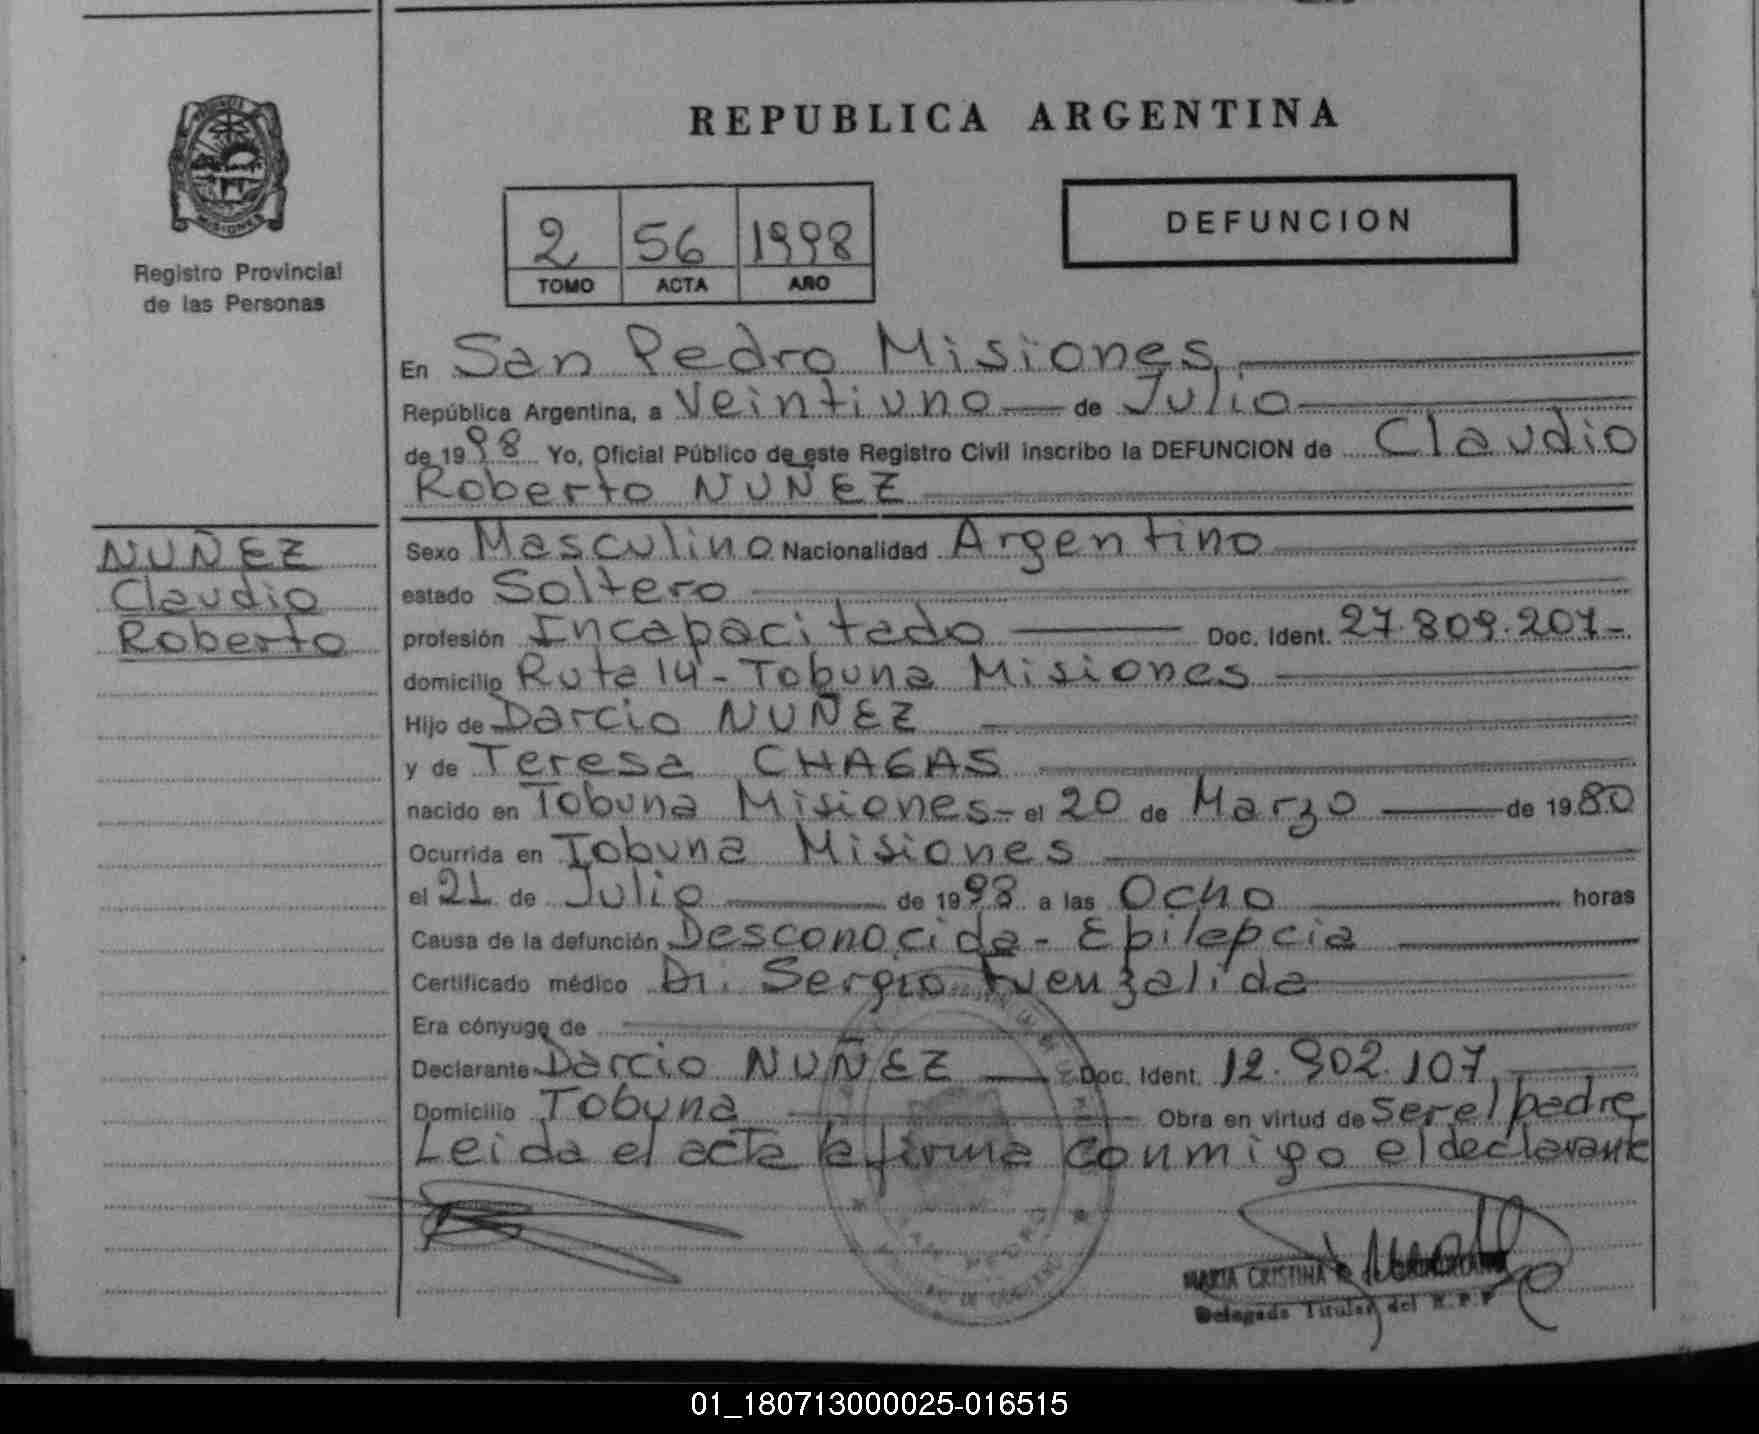 REPUBLICA ARGENTINA
2 56 1998
TOMO ACTA AÑO
DEFUNCION
MISIONES
Registro Provincial
de las Personas
En San Pedro Misiones
República Argentina, a Veintiuno de Julio
de 1998 Yo, Oficial Público de este Registro Civil inscribo la DEFUNCION de Claudio
Roberto NUÑEZ
NUÑEZ
Claudio
Roberto
Sexo Masculino Nacionalidad Argentino
estado Soltero
profesión Incapacitado Doc. Ident. 27.809.207-
domicilio Ruta 14 - Tobuna Misiones
Hijo de Darcio NUÑEZ
y de Teresa CHAGAS
nacido en Tobuna Misiones - el 20 de Marzo de 1980
Ocurrida en Tobuna Misiones
el 21 de Julio de 1998 a las Ocho horas
Causa de la defunción Desconocida - Epilepcia
Certificado médico Dr. Sergio Fuenzalida
Era cónyuge de
Declarante Darcio NUÑEZ Doc. Ident. 12.902.107
Domicilio Tobuna Obra en virtud de Ser el padre
Leida el acta la firma conmigo el declarante
MARIA CRISTINA
Delegada Titular del R.P.P
01_180713000025-016515